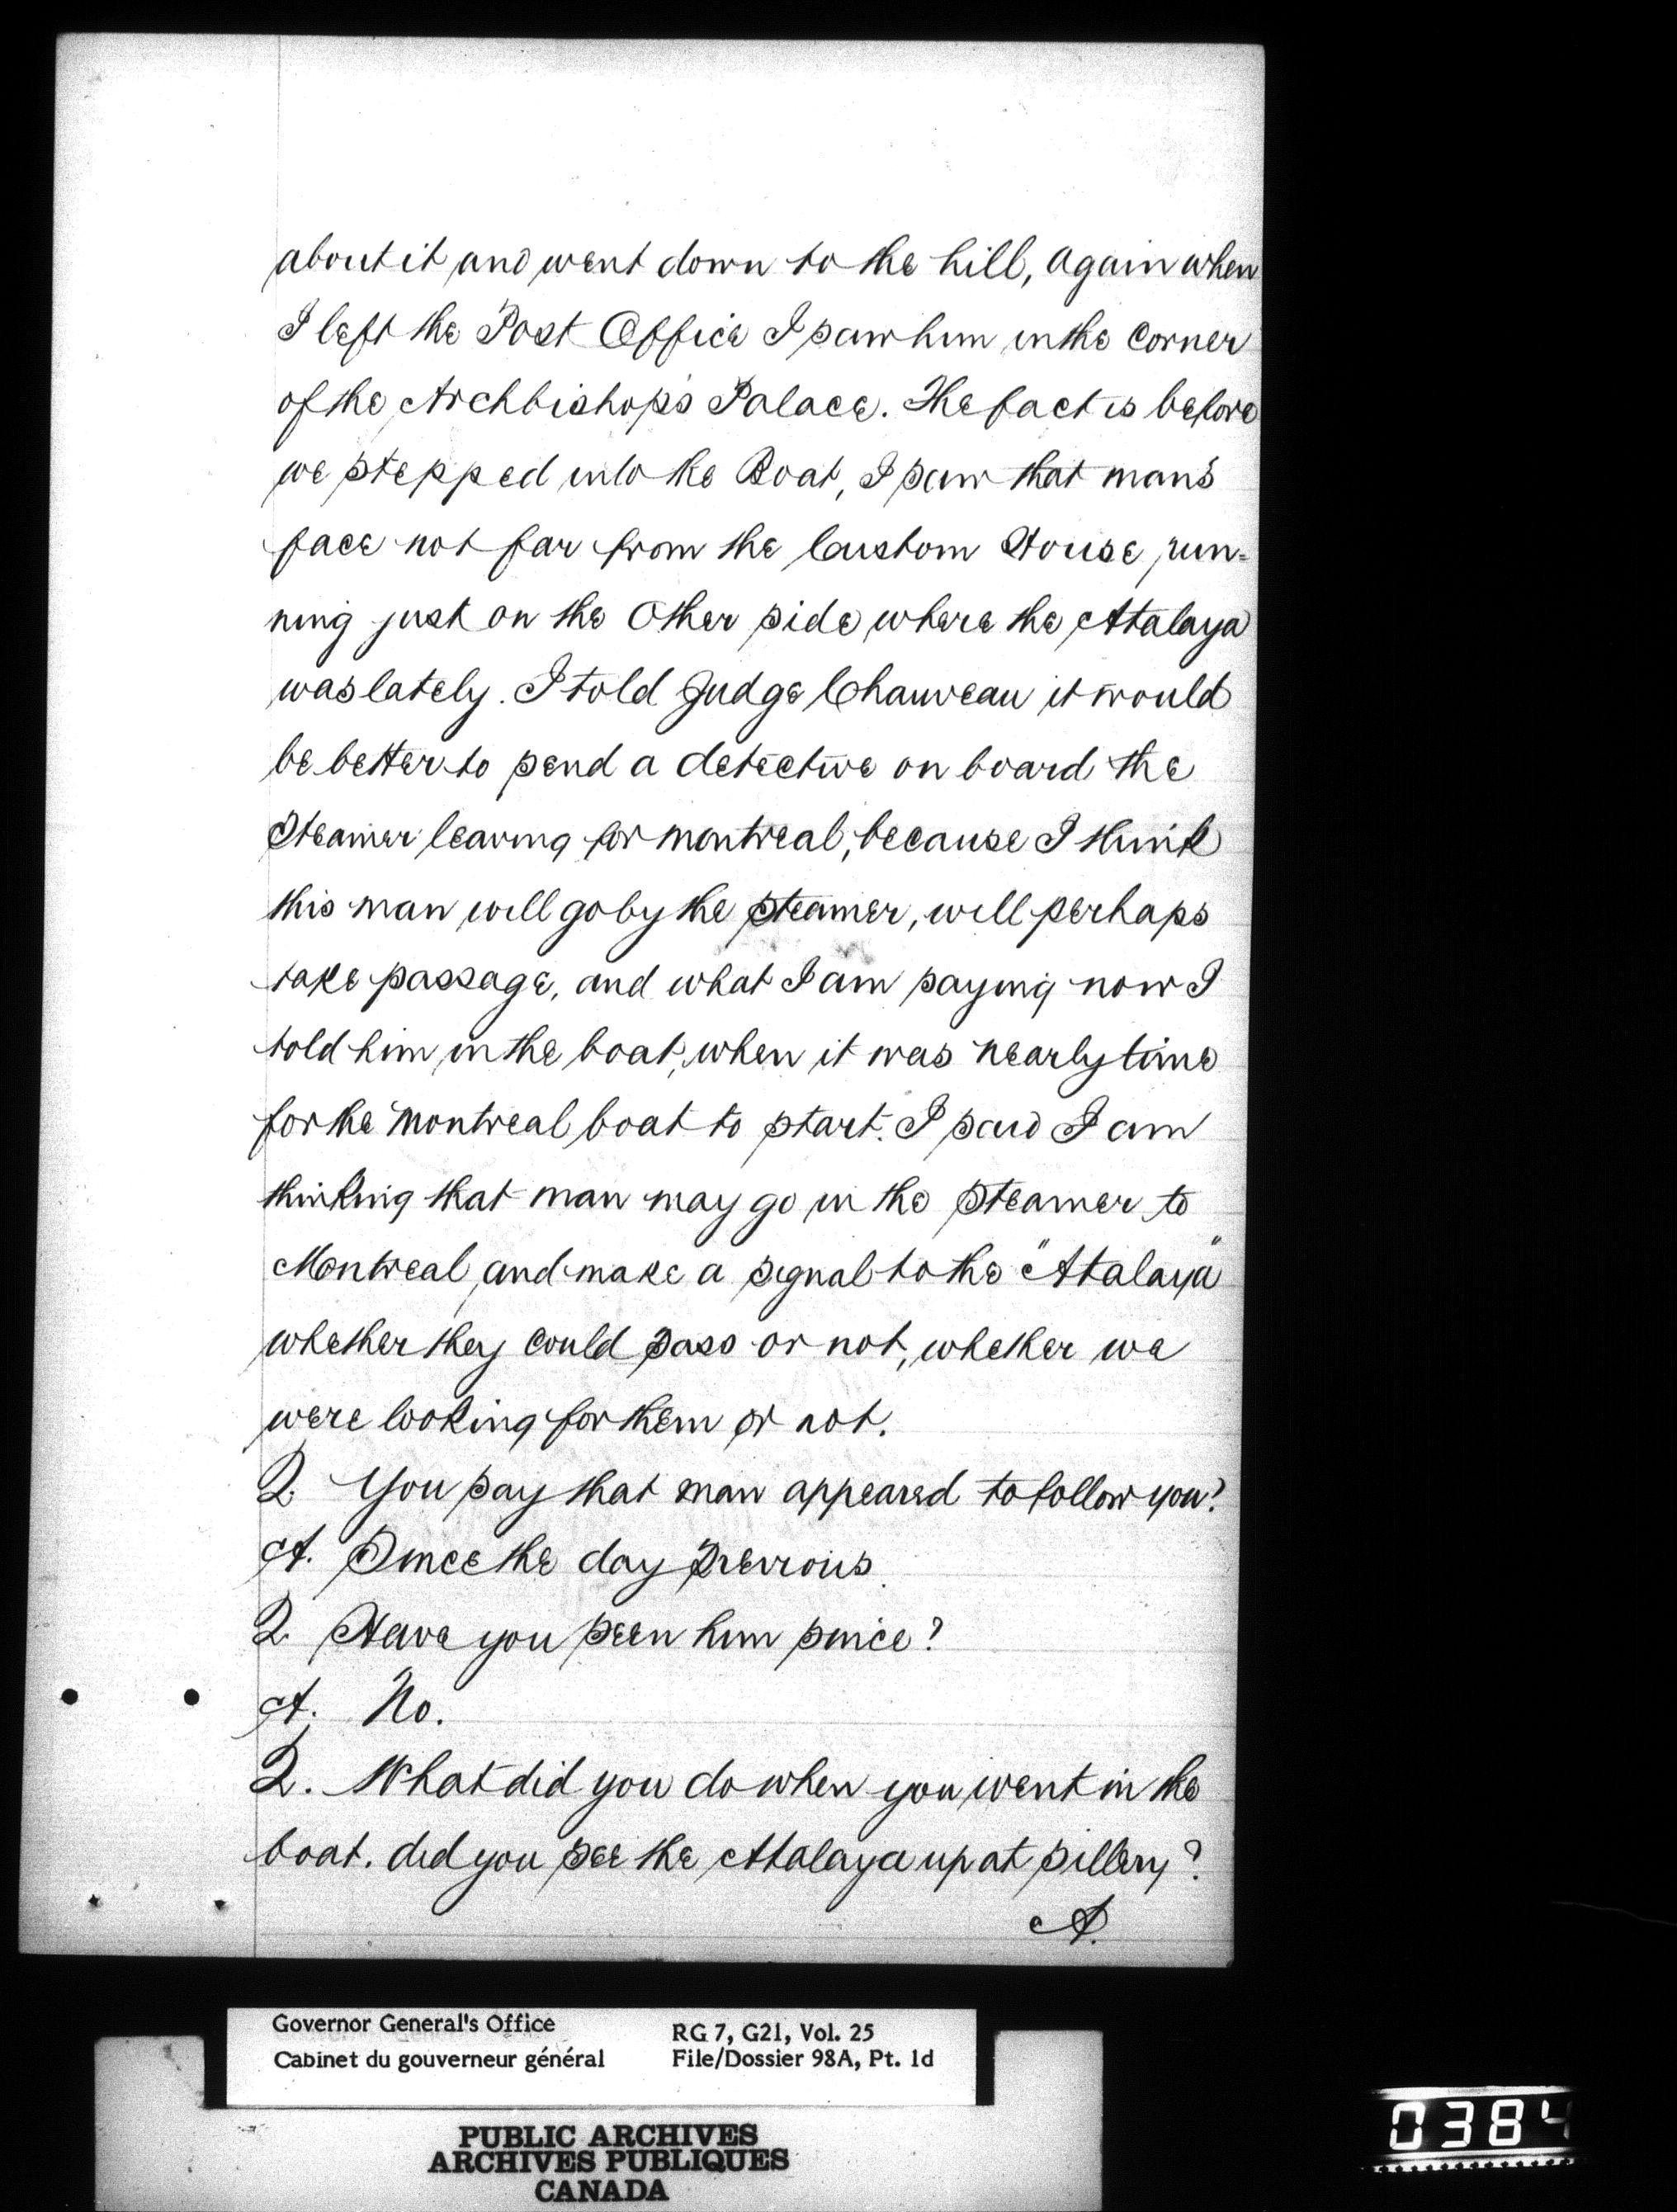 about it and went down to the hill, again when
I left the Post Office I saw him in the corner
of the Archbishop's Palace. The fact is before
we stepped into the Boat, I saw that man's
face not far from the Custom House run=
ning just on the other side where the Atalaya
was lately. I told Judge Chauveau it would
be better to send a detective on board the
Steamer leaving for Montreal, because I think
this man will go by the steamer, will perhaps
take passage, and what I am saying now I
told him in the boat, when it was nearly time
for the Montreal boat to start. I said I am
thinking that man may go in the steamer to
Montreal and make a signal to the "Atalaya"
whether they could pass or not, whether we
were looking for them or not.
Q. You say that man appeared to follow you?
A. Since the day previous.
Q. Have you seen him since?
A. No.
Q. What did you do when you went in the
boat. did you see the Atalaya up at Sillery?
A.
Governor General's Office
Cabinet du gouverneur général
RG 7, G21, Vol. 25
File/Dossier 98A, Pt. 1d
PUBLIC ARCHIVES
ARCHIVES PUBLIQUES
CANADA
0384